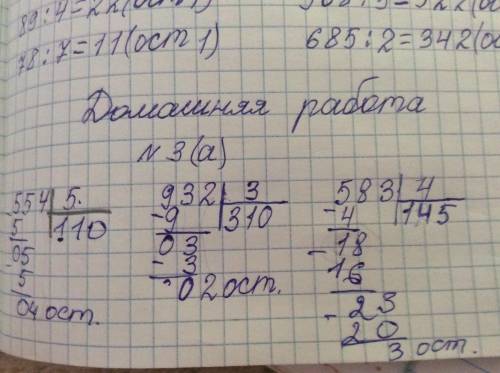 89:4=22(ост1)
78:7=11(ост1)
685:2=342(ос
Домашняя работа
N 3(а)
554 5.
5 110
05
5
04 ост.
932 3
-9 310
03
-3
02 ост.
583 4
-4 145
-18
16
-23
20
3 ост.